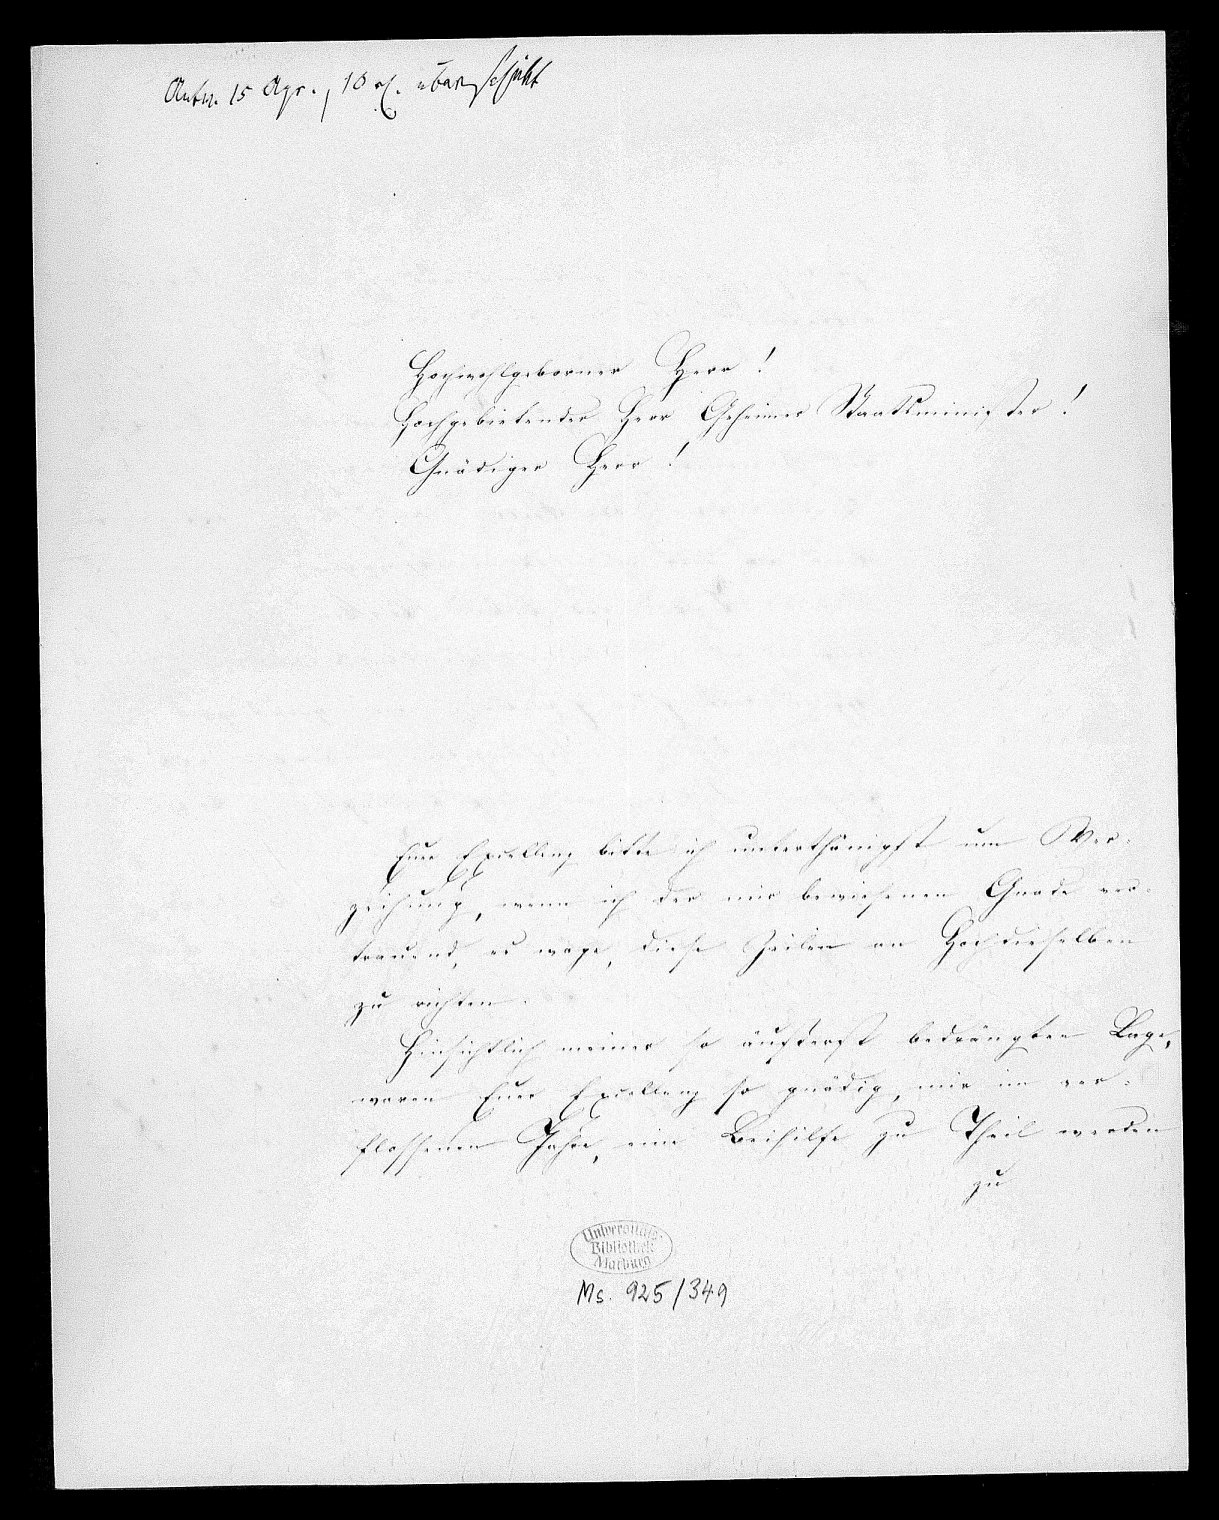 Antw. 15 Apr., 10 rℓ. überschickt
Hochwohlgeborner Herr!
Hochgebietender Herr Geheimer Staatsminister!
Gnädiger Herr!
Euer Excellenz bitte ich unterthänigst um Ver-
zeihung, wenn ich der mir bewiesenen Gnade ver-
trauend, es wage, diese Zeilen an Hochdieselben
zu richten.
Hinsichtlich meiner so äußerst bedrängten Lage,
waren Euer Excellenz so gnädig, mir im ver-
flossenen Jahre, eine Beihilfe zu Theil werden
zu
Universitäts-
Bibliothek
Marburg
Ms. 925/349